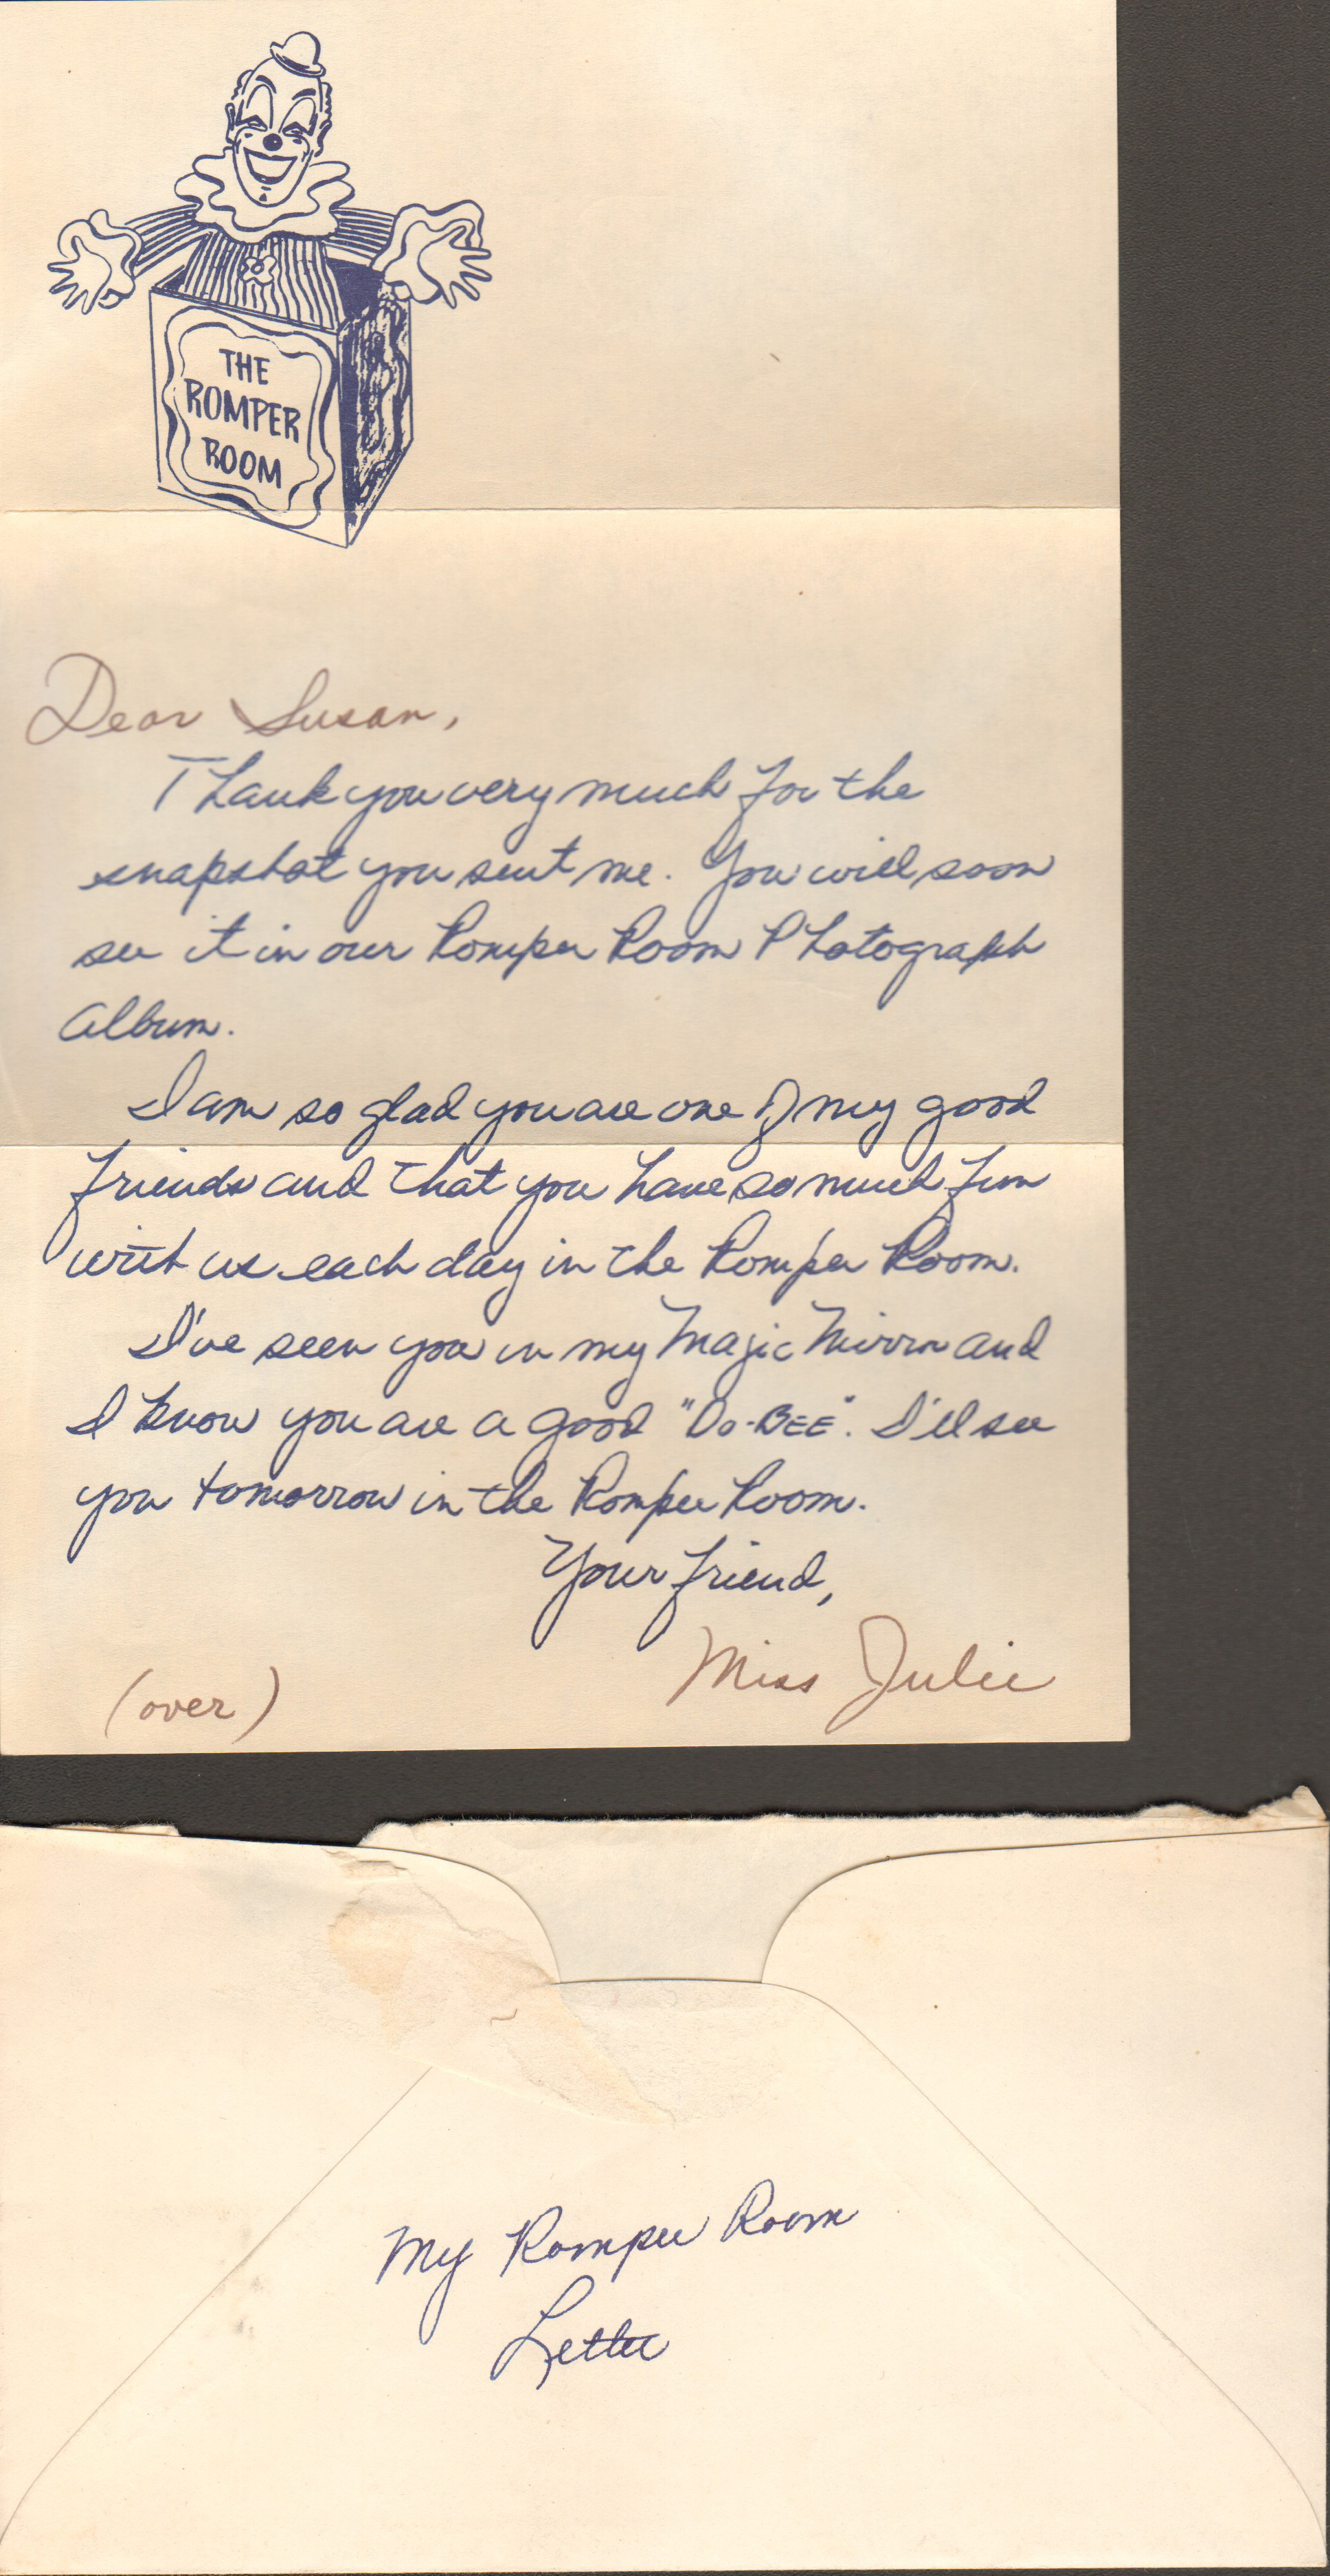 THE
ROMPER
ROOM
Dear Susan,
Thank you very much for the
snapshot you sent me. You will soon
see it in our Romper Room Photograph
Album.
I am so glad you are one of my good
friends and that you have so much fun
with us each day in the Romper Room.
I've seen you in my Magic Mirror and
I know you are a good "Do-BEE". I'll see
you tomorrow in the Romper Room.
Your friend,
Miss Julie
(over)
My Romper Room
Letter